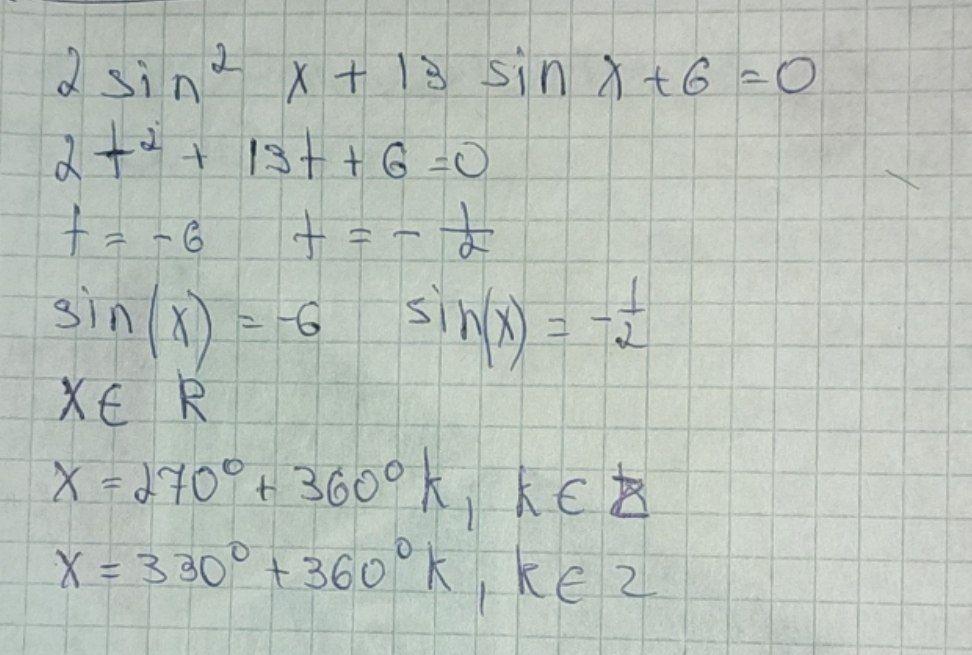 2 sin² x + 13 sin x + 6 = 0
2t² + 13t + 6 = 0
t = -6 t = - 1/2
sin(x) = -6 sin(x) = - 1/2
x ∈ R
x = 270° + 360° k, k ∈ Z
x = 330° + 360° k, k ∈ Z